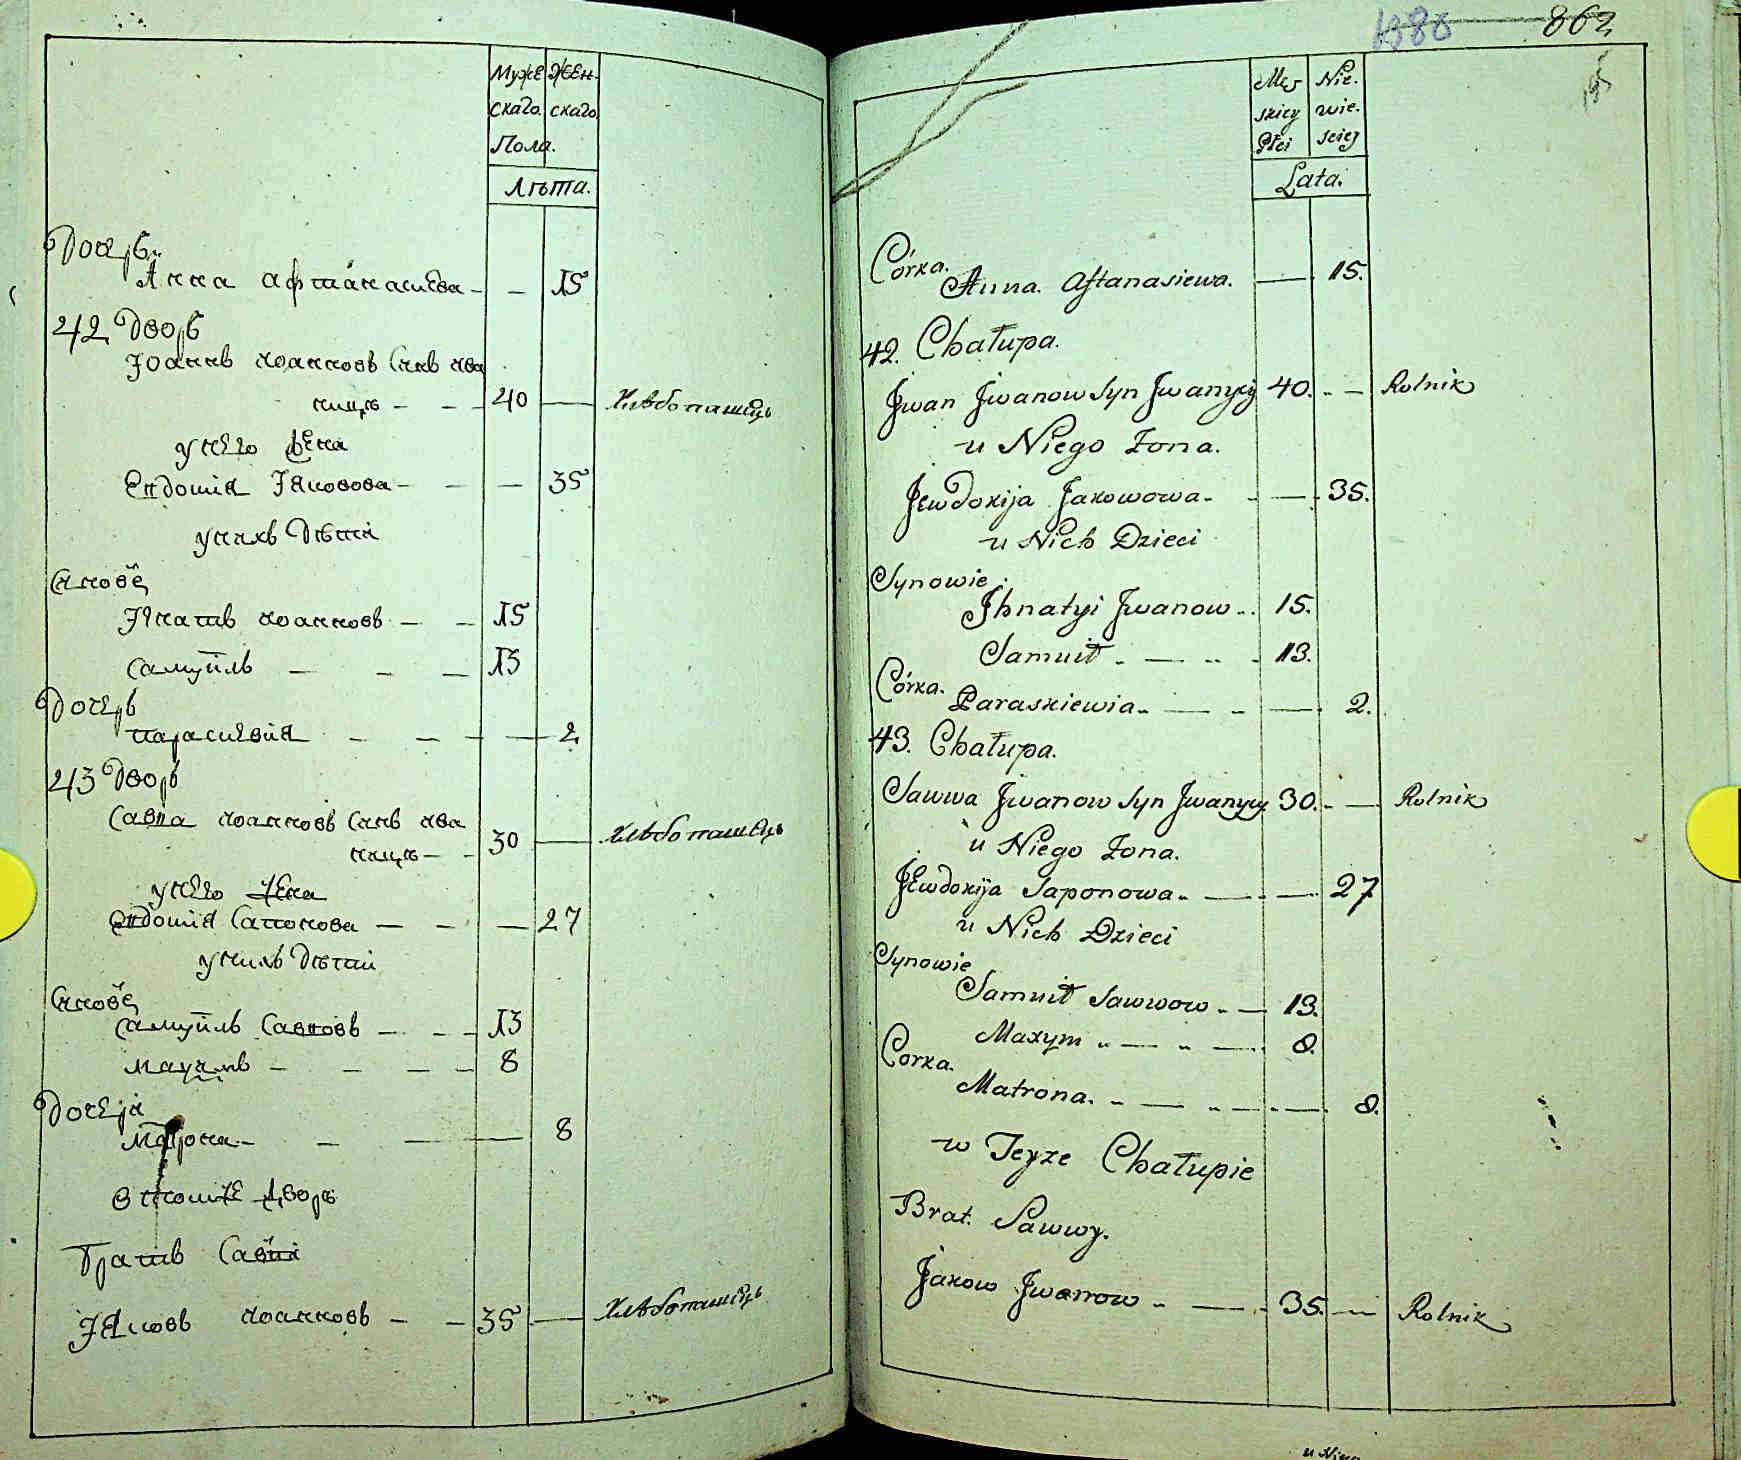 Муже Жен-
скаго. скаго.
Пола.
Лѣта.
Дочерь.
Анна Афтанасиева - - 15
42 Дворъ
Іоаннъ иоанновъ Синъ ива
ницъ - - - 40 — Хлѣбопашецъ
у него жена
Евдокія Іяковова - - - 35
у нихъ Дѣти
Синове
Игнатъ иоанновъ - - 15
Самуилъ - - - 13
Дочерь
параскевия - - - — 2
43 Дворъ
Савва иоанновъ Синъ ива
ницъ - - 30 — Хлѣбопашецъ
у него Жена
Евдокія Сапонова - - - 27
у нихъ Дѣти
Синове
Самуилъ Саввовъ - - - 13
- - - - 8
Дочерь
Матрона - - — — 8
в томже Дворѣ
Братъ Савви
Іяковъ иоанновъ - - 35 — Хлѣбопашецъ
1386 862
Mę- Nie.
skiey wie.
Płci sciey
Lata.
Córka.
Anna. Aftanasiewa. — 15.
42. Chałupa.
Jwan Jwanow Syn Jwanycy 40. - — Rolnik
u Niego Żona.
Jewdokija Jakowowa - - — 35.
u Nich Dzieci
Synowie.
Jhnatyi Jwanow - . 15.
Samuił - — - - 13.
Córka.
Paraskiewia - — - — 2.
43. Chałupa.
Sawwa Jwanow Syn Jwanycy 30. - — Rolnik
u Niego Żona.
Jewdokija Saponowa - — - — 27
u Nich Dzieci
Synowie
Samuił Sawwow - — 13.
Maxym - — - — 8.
Corka.
Matrona. - — - - — 8.
w Teyże Chałupie
Brat. Sawwy.
Jakow Jwanow - — - 35. — Rolnik